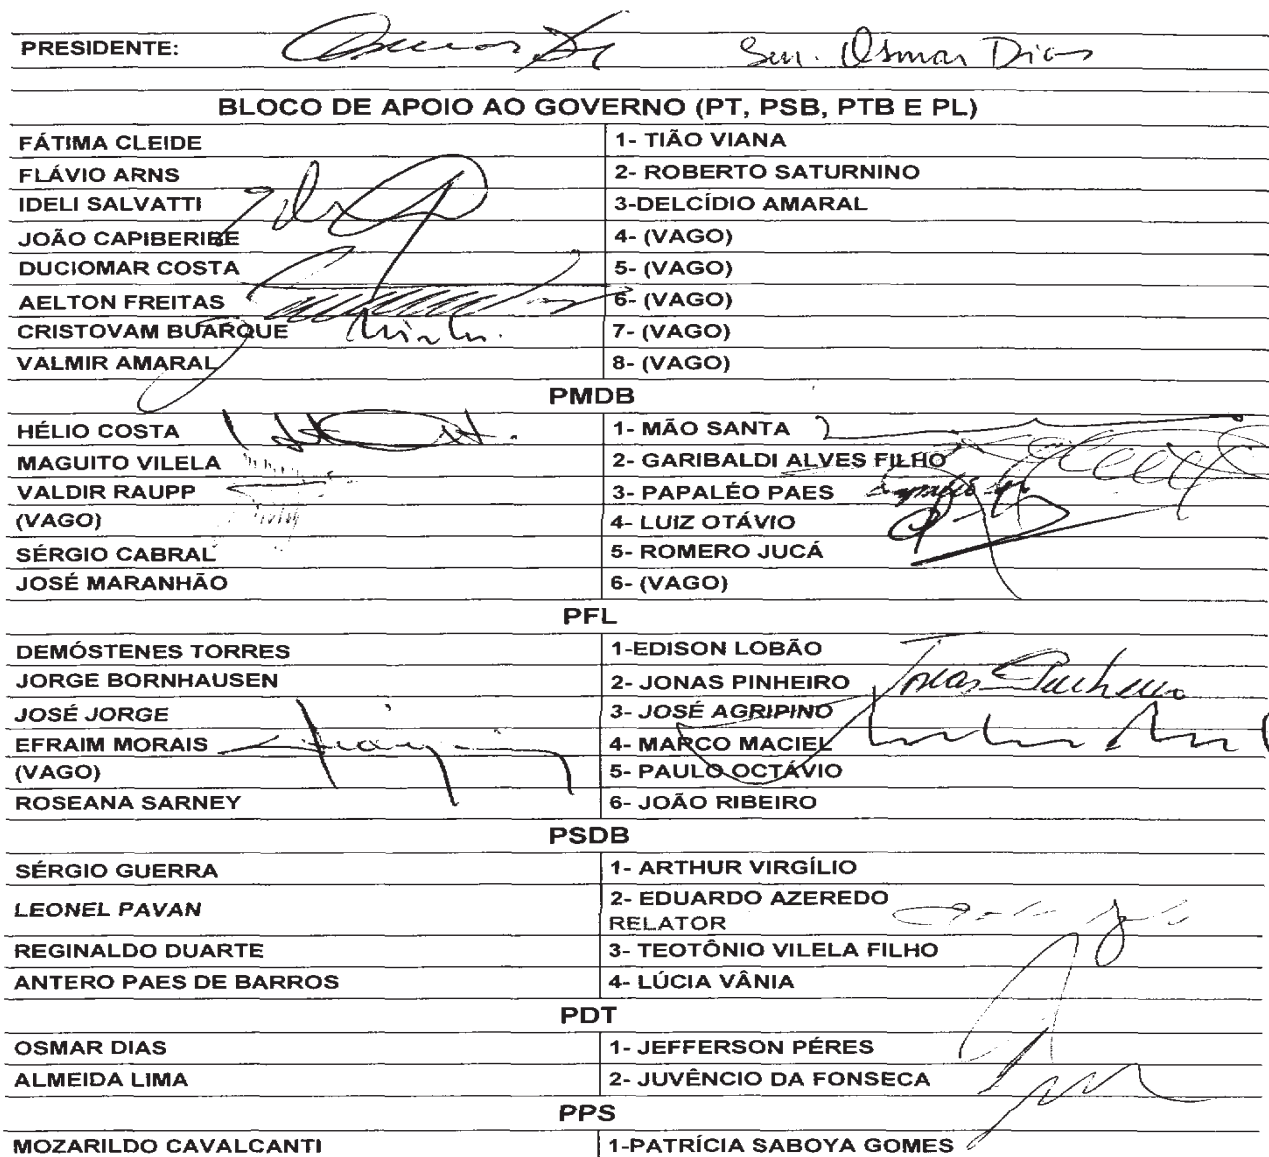 PRESIDENTE: Sen. Osmar Dias
BLOCO DE APOIO AO GOVERNO (PT, PSB, PTB E PL)
FÁTIMA CLEIDE 1- TIÃO VIANA
FLÁVIO ARNS 2- ROBERTO SATURNINO
IDELI SALVATTI 3-DELCÍDIO AMARAL
JOÃO CAPIBERIBE 4- (VAGO)
DUCIOMAR COSTA 5- (VAGO)
AELTON FREITAS 6- (VAGO)
CRISTOVAM BUARQUE 7- (VAGO)
VALMIR AMARAL 8- (VAGO)
PMDB
HÉLIO COSTA 1- MÃO SANTA
MAGUITO VILELA 2- GARIBALDI ALVES FILHO
VALDIR RAUPP 3- PAPALÉO PAES
(VAGO) 4- LUIZ OTÁVIO
SÉRGIO CABRAL 5- ROMERO JUCÁ
JOSÉ MARANHÃO 6- (VAGO)
PFL
DEMÓSTENES TORRES 1-EDISON LOBÃO
JORGE BORNHAUSEN 2- JONAS PINHEIRO Jonas Pinheiro
JOSÉ JORGE 3- JOSÉ AGRIPINO
EFRAIM MORAIS 4- MARCO MACIEL
(VAGO) 5- PAULO OCTÁVIO
ROSEANA SARNEY 6- JOÃO RIBEIRO
PSDB
SÉRGIO GUERRA 1- ARTHUR VIRGÍLIO
LEONEL PAVAN 2- EDUARDO AZEREDO
RELATOR
REGINALDO DUARTE 3- TEOTÔNIO VILELA FILHO
ANTERO PAES DE BARROS 4- LÚCIA VÂNIA
PDT
OSMAR DIAS 1- JEFFERSON PÉRES
ALMEIDA LIMA 2- JUVÊNCIO DA FONSECA
PPS
MOZARILDO CAVALCANTI 1-PATRÍCIA SABOYA GOMES